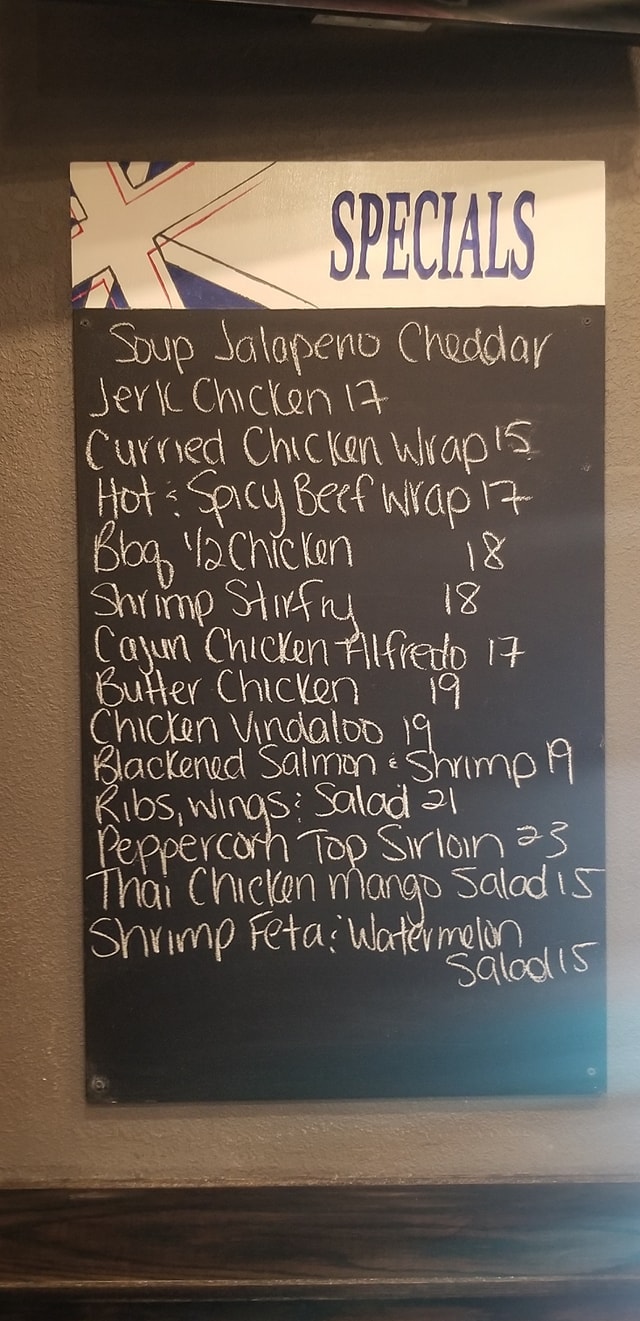 SPECIALS
Soup Jalapeno Cheddar
Jerk Chicken 17
Curried Chicken Wrap 15
Hot & Spicy Beef Wrap 17
Bbq 1/2 Chicken 18
Shrimp Stirfry 18
Cajun Chicken Alfredo 17
Butter Chicken 19
Chicken Vindaloo 19
Blackened Salmon & Shrimp 19
Ribs, Wings & Salad 21
Peppercorn Top Sirloin 23
Thai Chicken Mango Salad 15
Shrimp Feta & Watermelon
Salad 15